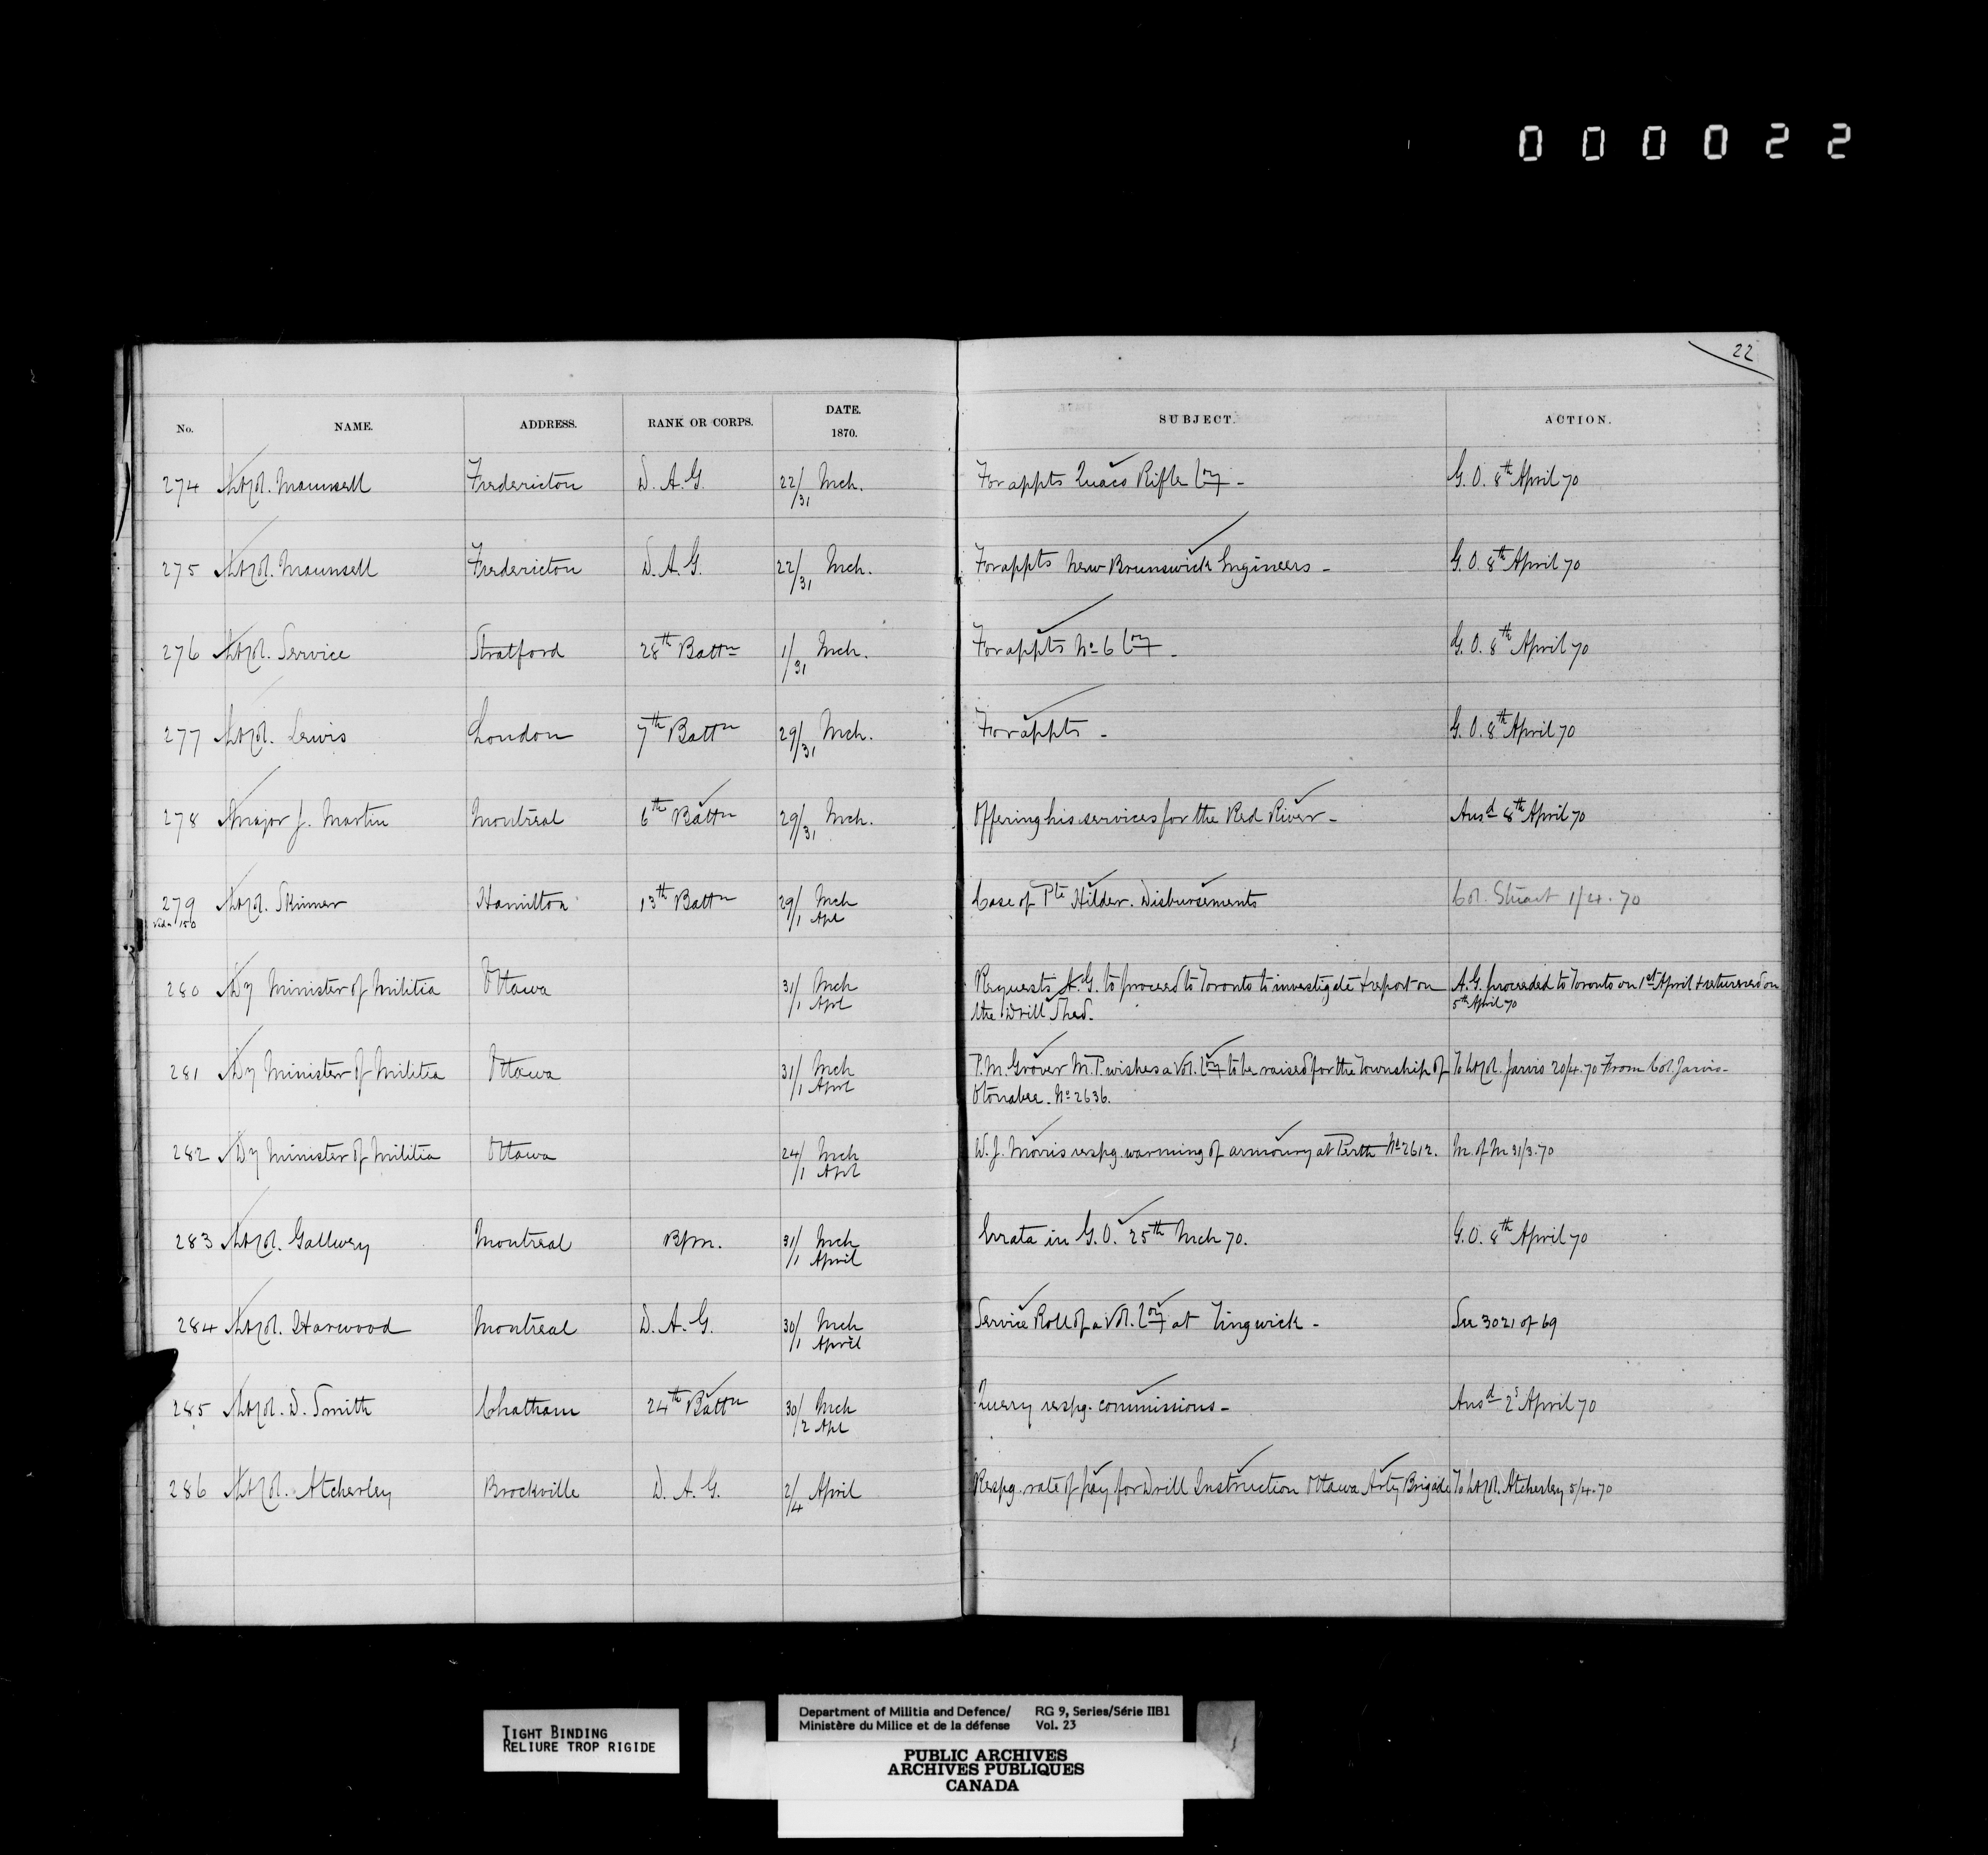 000022
22
No. NAME. ADDRESS. RANK OR CORPS. DATE. 1870. SUBJECT. ACTION.
274 Lt Col. Maunsell Fredericton D. A. G. 22/31 Mch. For appts Quaco Rifle Coy - G. O. 8th April 70
275 Lt Col. Maunsell Fredericton D. A. G. 22/31 Mch. For appts New Brunswick Engineers - G. O. 8th April 70
276 Lt Col. Service Stratford 28th Battn 1/31 Mch. For appts No 6 Coy - G. O. 8th April 70
277 Lt Col. Lewis London 7th Battn 29/31 Mch. For appts - G. O. 8th April 70
278 Major J. Martin Montreal 6th Battn 29/31 Mch. Offering his services for the Red River - Ansd 8th April 70
279 Lt Col. Skinner Hamilton 13th Battn 29/ Mch Case of Pte Hilder. Disbursements Col. Stuart 1/4.70
Vide 150 /1 Apl
280 Dy Minister of Militia Ottawa 31/ Mch Requests A. G. to proceed to Toronto to investigate & report on A. G. proceeded to Toronto on 1st April & returned on
/1 Aprl the Drill Shed. 5th April 70
281 Dy Minister of Militia Ottawa 31/ Mch P. M. Grover M. P. wishes a Vol. Coy to be raised for the Township of To Lt Col. Jarvis 20/4.70 From Col. Jarvis -
/1 Aprl Otonabee. No 2636.
282 Dy Minister of Militia Ottawa 24/ Mch W. J. Morris respg. warming of armoury at Perth No 2612. M. of M 31/3.70
/1 Aprl
283 Lt Col. Gallwey Montreal B.M. 31/ Mch Errata in G. O. 25th Mch 70. G. O. 8th April 70
/1 April
284 Lt Col. Harwood Montreal D. A. G. 30/ Mch Service Roll of a Vol. Coy at Tingwick - See 3021 of 69
/1 April
285 Lt Col. D. Smith Chatham 24th Battn 30/ Mch Query respg. commissions - Ansd 2d April 70
/2 Apl
286 Lt Col. Atcherley Brockville D. A. G. 2/4 April Respg. rate of pay for Drill Instruction Ottawa Arty Brigade To Lt Col. Atcherley 5/4.70
TIGHT BINDING
RELIURE TROP RIGIDE
Department of Militia and Defence/ RG 9, Series/Série IIB1
Ministère du Milice et de la défense Vol. 23
PUBLIC ARCHIVES
ARCHIVES PUBLIQUES
CANADA